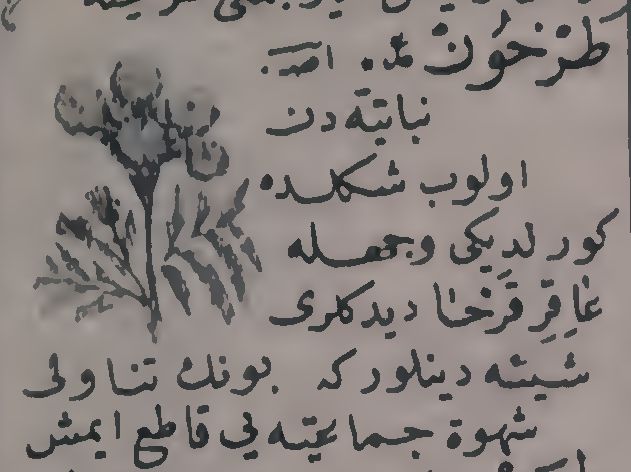 طَرْخُونْ
نباتيّه دن
اولوب شكلده
كورلديكى وجهله
عَاقِرِ قَرْخَا ديدكلرى
شيئه دينلور كه بونك تناولى
شهوة جماعيّه يى قاطع ايمش